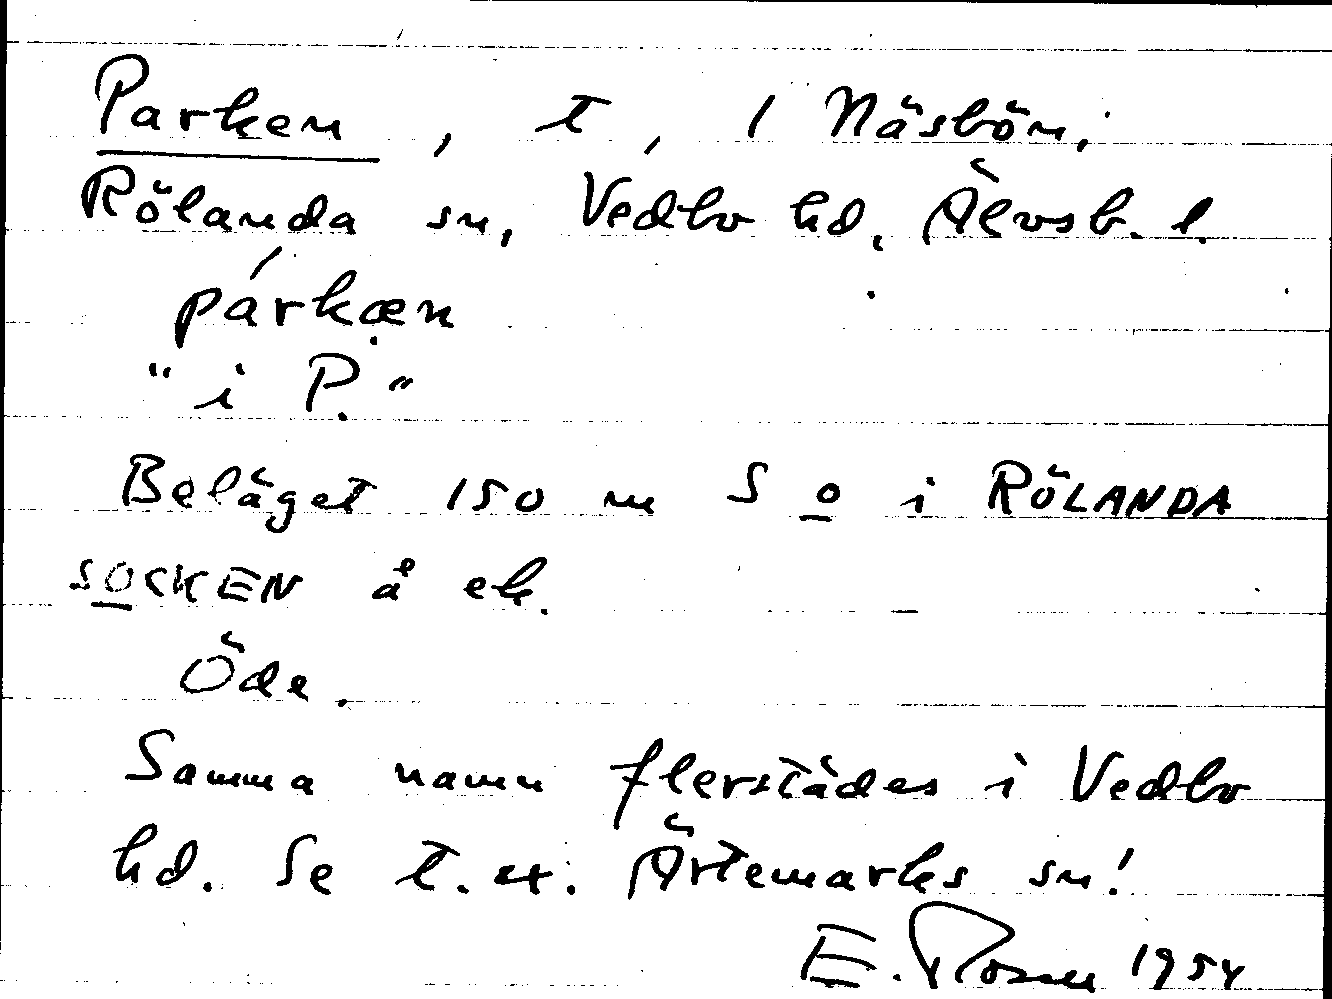 Parken, t, 1 Näsbön,
Rölanda sn, Vedbo hd, Älvsb. l.
párkæn
"i P."
Beläget 150 m S o i RÖLANDA
SOCKEN å ek.
Öde.
Samma namn flerstädes i Vedbo
hd. Se t.ex. Ärtemarks sn!
E. Rosen 1954